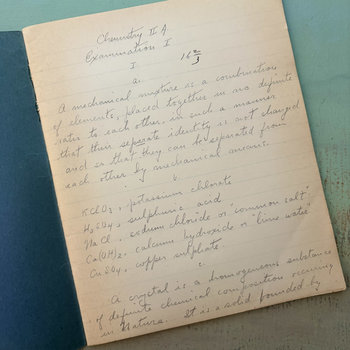 Chemistry II A
Examination I
I
16 2/3
a.
A mechanical mixture is a combination
of elements, placed together in no definite
ratio to each other, in such a manner
that their separate identity is not changed
and so that they can be separated from
each other by mechanical means.
b.
KClO3, potassium chlorate
H2SO4, sulphuric acid
NaCl, sodium chloride or "common salt"
Ca(OH)2, calcium hydroxide or "lime water"
CuSO4, copper sulphate
c.
A crystal is a homogeneous substance
of definite chemical composition occuring
in Nature. It is a solid bounded by